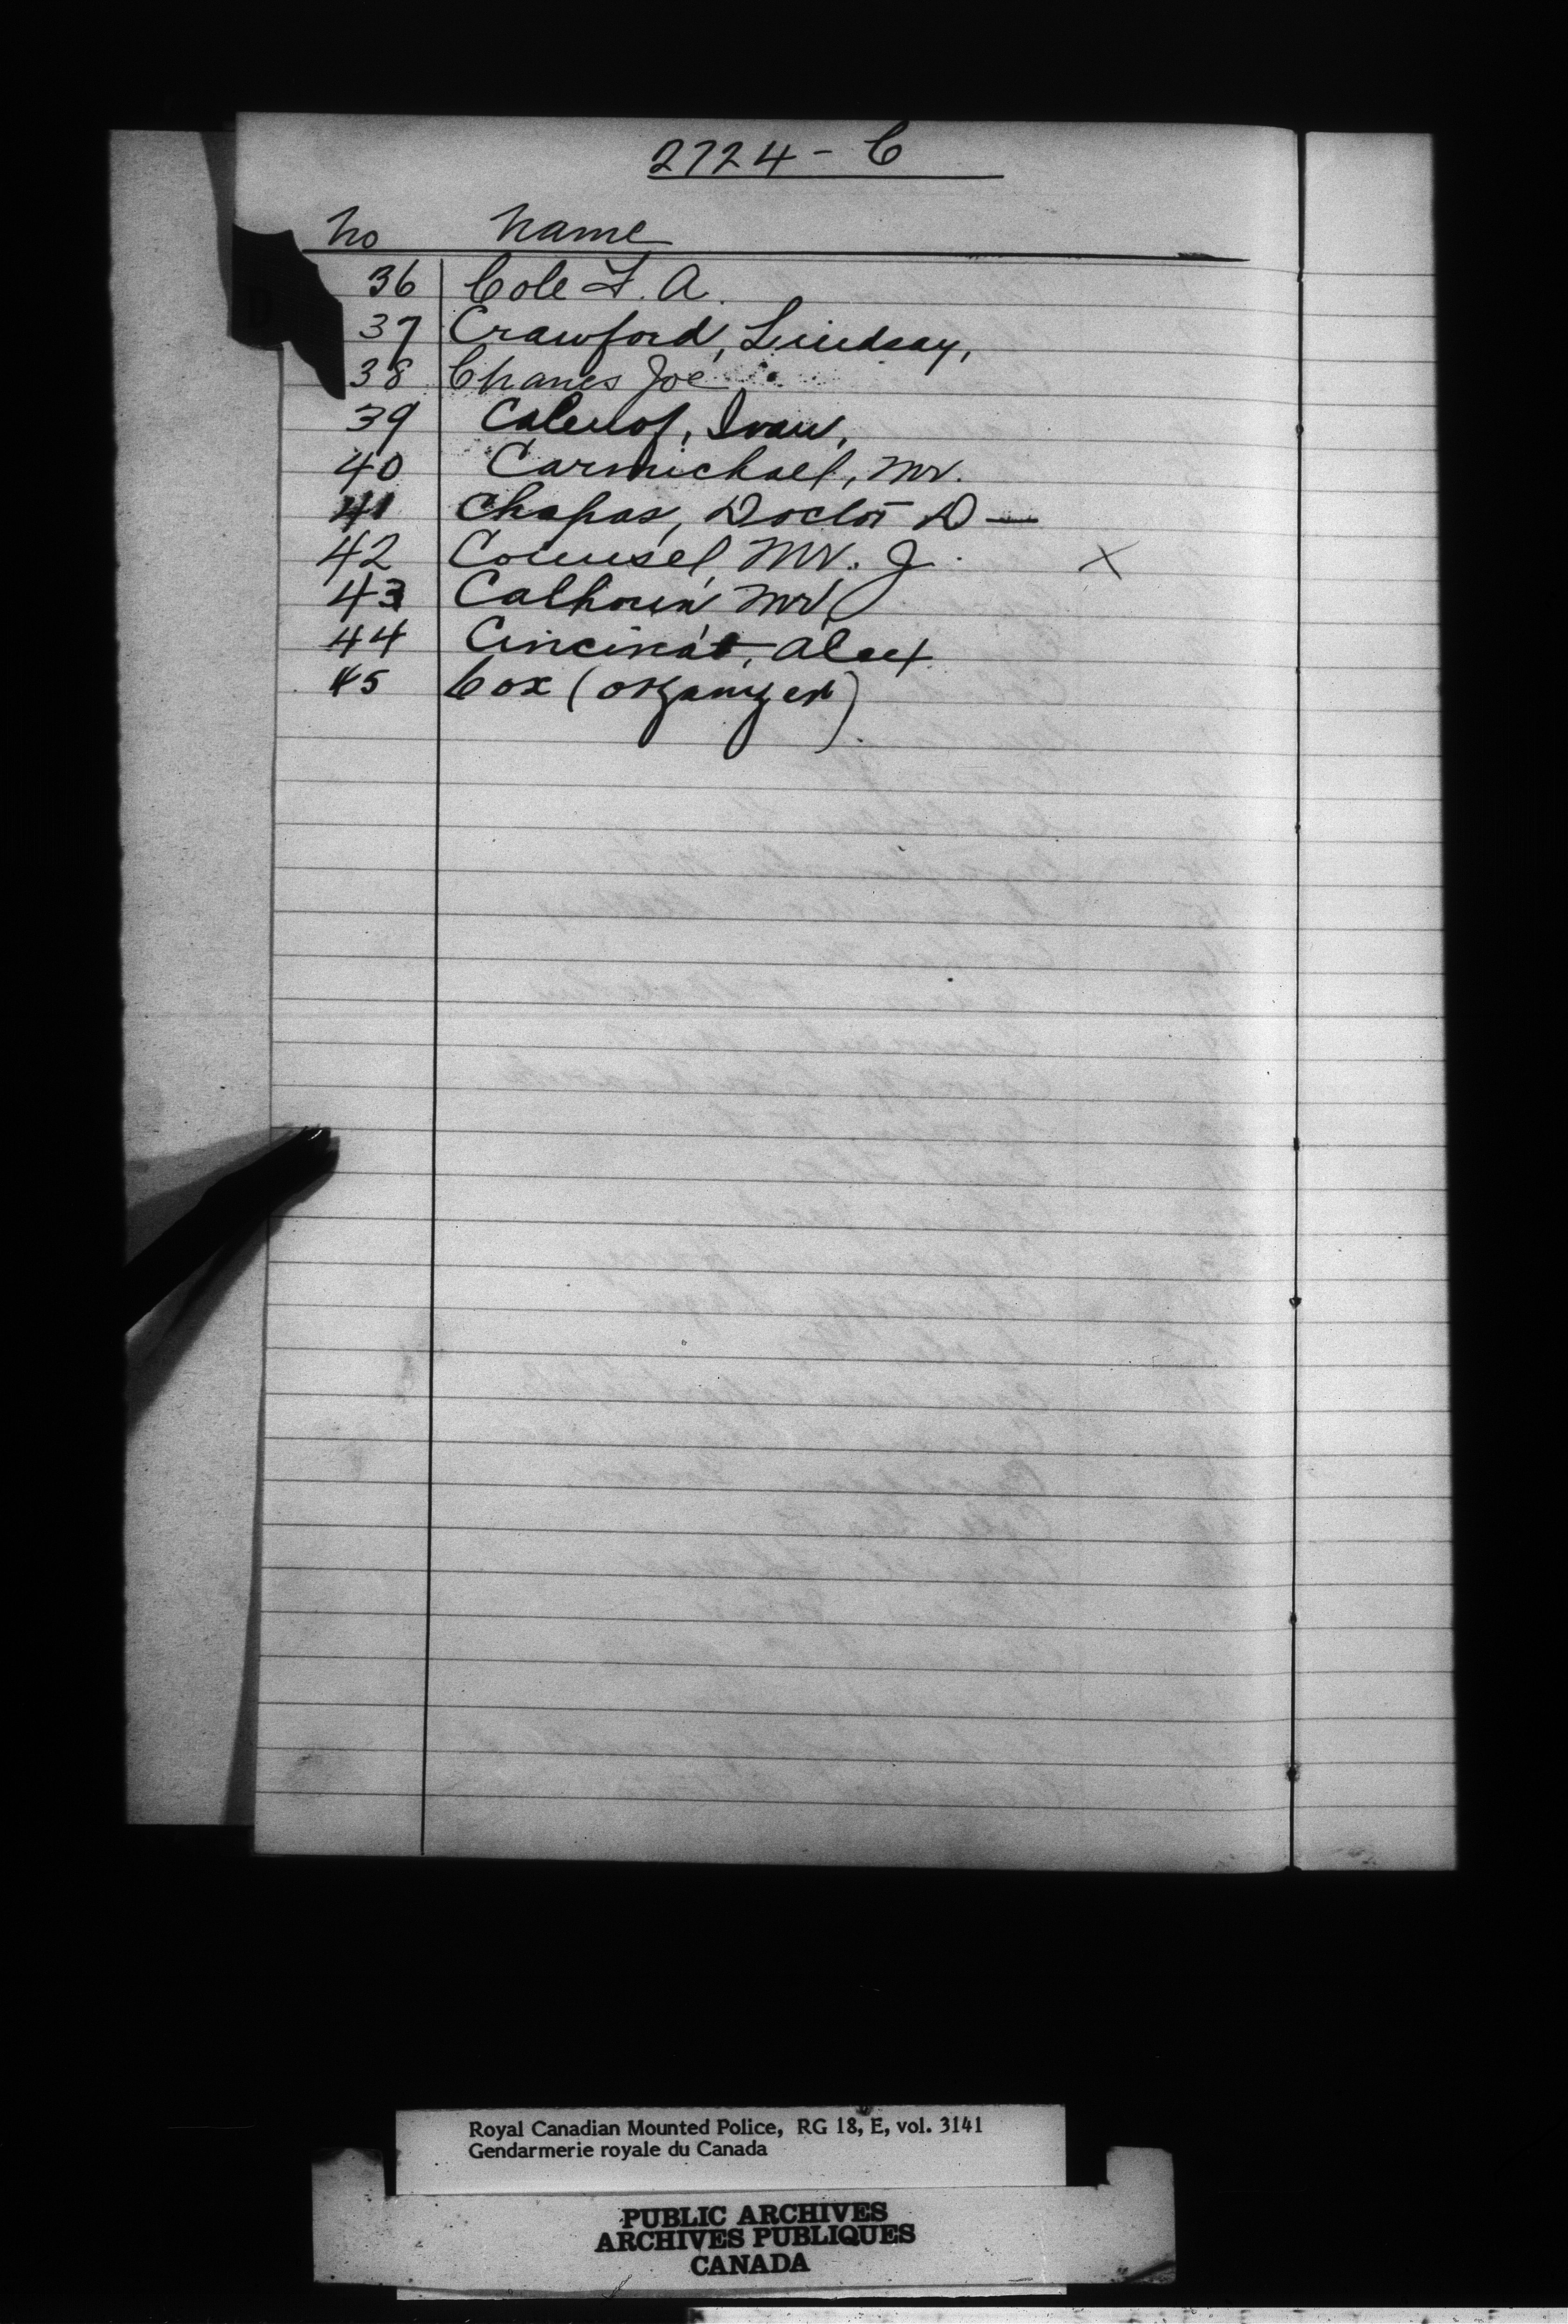 2724 - C
No Name
36 Cole F. A.
37 Crawford, Lindsay,
38 Chanes Joe
39 Calenof, Ivan,
40 Carmichael, Mr.
41 Chapas, Doctor D —
42 Counsel, Mr. J. X
43 Calhoun, Mr.
44 Cincinat, Alex
45 Cox (organizer).
D
Royal Canadian Mounted Police, RG 18, E, vol. 3141
Gendarmerie royale du Canada
PUBLIC ARCHIVES
ARCHIVES PUBLIQUES
CANADA